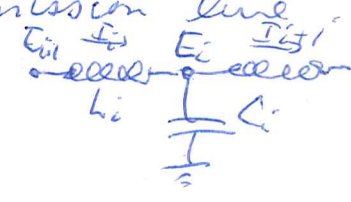 mission line
E_{i-1} I_i E_i I_{i+1}
L_i C_i